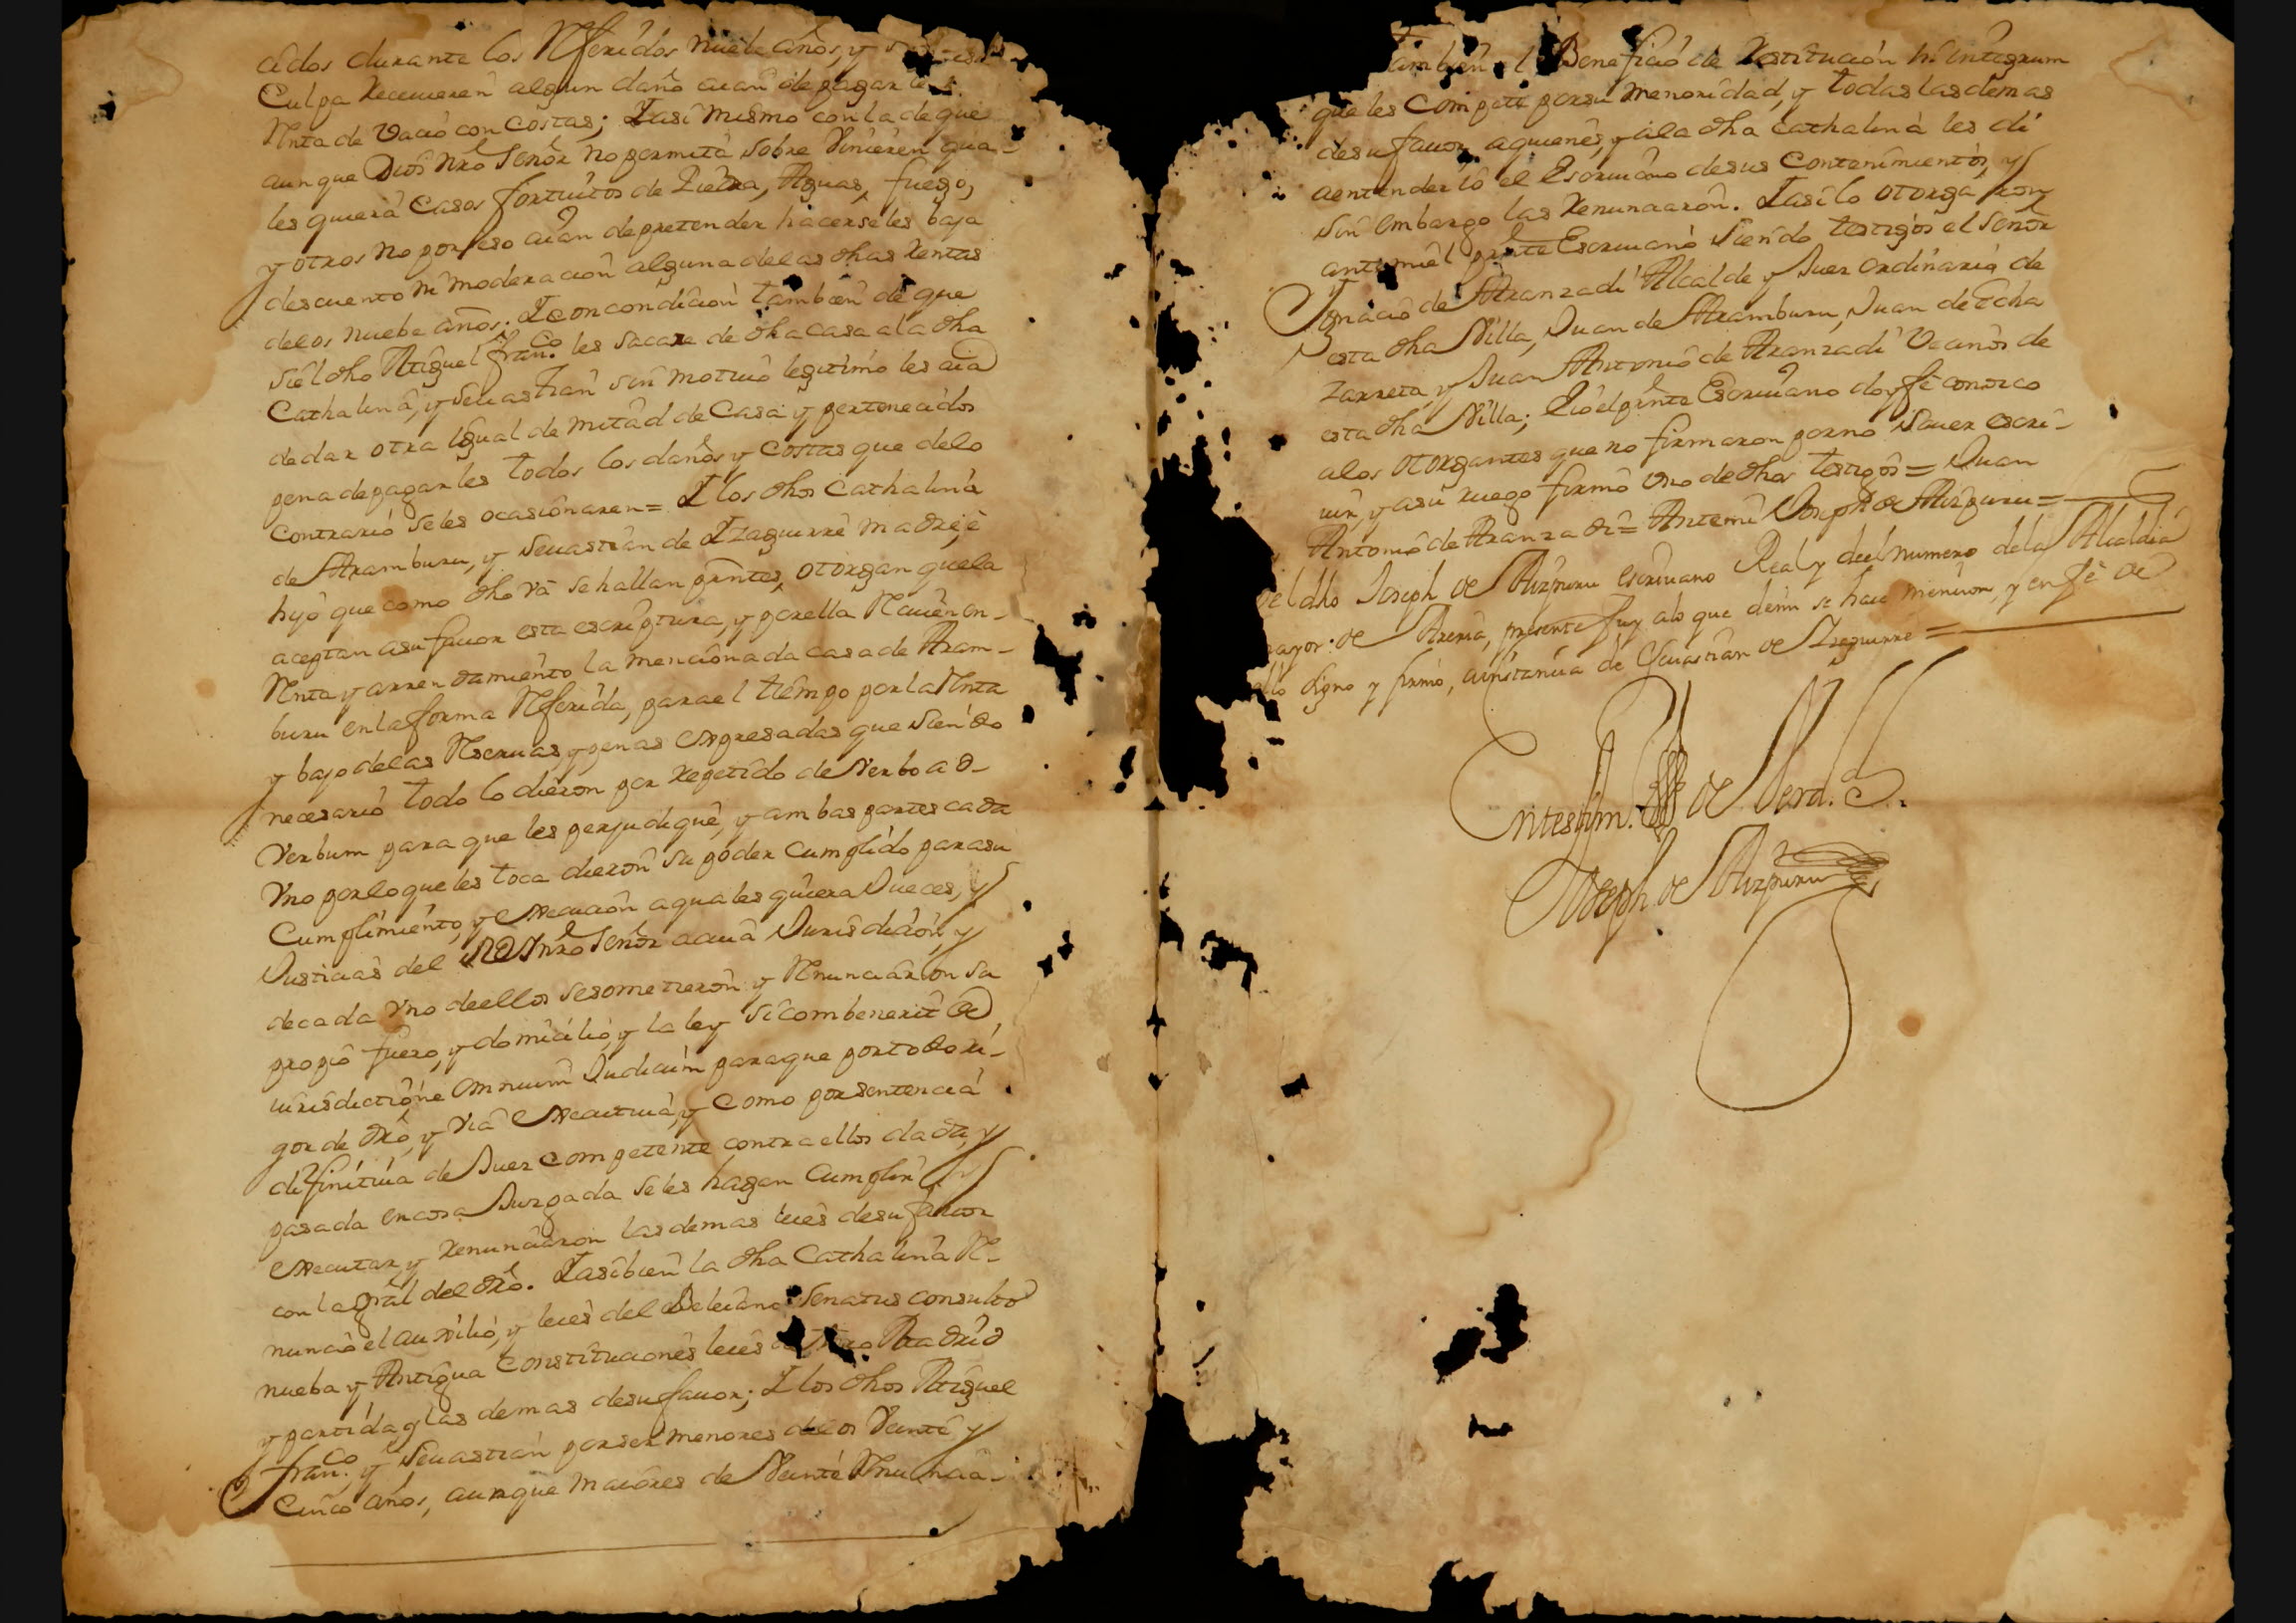 cidos durante los Referidos nuebe años, y si por su
Culpa Receuieren algun daño aian de pagar les
Renta de vacio con costas; Y asi mismo con la de que
aunque Dios nro Señor no permita sobre vinieren qua-
les quiera casos fortuitos de Piedra, Aguas, fuego,
y otros no por eso aian de pretender hacerseles baja
descuento ni moderacion alguna de las dhas Rentas
de los nuebe años; Y con condicion tambien de que
si el dho Miguel Fran.co les sacare de dha casa a la dha
Cathalina, y Seuastian sin motiuo legitimo les aia
de dar otra Igual de mitad de Casa y pertenecidos
pena de pagarles todos los daños y costas que de lo
contrario se les ocasionaren = Y los dhos Cathalina
de Aramburu, y Seuastian de Yzaguirre madre, è
hijo que como dho và se hallan prntes, otorgan que la
aceptan a su fauor esta escriptura, y por ella Reciuen en-
Renta y arrendamiento la mencionada casa de Aram-
buru en la forma Referida, para el tiempo por la Renta
y bajo de las Reseruas y penas expresadas que siendo
necesario todo lo dieron por Repetido de Verbo ad-
Verbum para que les perjudique, y ambas partes cada
Vno por lo que les toca dieron su poder cumplido para su
Cumplimiento, y execucion a quales quiera Jueces, y
Justicias del Rey nro Señor a cuia Jurisdicion, y
de cada Vno de ellos se sometieron y Renunciaron su
propio fuero, y domicilio, y la ley si combenerit de
iurisdictione omnium Judicum para que por todo ri-
gor de dro, y via executiua, y como por sentencia
difinitiua de Juez competente contra ellos dada, y
pasada en cosa Juzgada se les hagan cumplir y
executar, y Renunciaron las demas leies de su fauor
con la gral del dro. Y asi bien la dha Cathalina Re-
nunciò el auxilio, y leies del Beleiano Senatus consulto
nueba y Antigua Constituciones leies de Toro Madrid
y partida y las demas de su fauor; Y los dhos Miguel
Fran.co y Seuastian por ser menores de los Veinte y
Cinco años, aunque maiores de Veinte Renuncia-
tambien el Beneficio de Restitucion in integrum
que les compete por su menoridad, y todas las demas
de su fauor, a quienes, y a la dha Cathalina les di
a entender io el Escriuano de sus contenimientos, y
sin embargo las Renunciaron. Y asi lo otorgaron
ante mi el prnte Escriuano siendo testigos el Señor
Ignacio de Aranzadi Alcalde y Juez ordinario de
esta dha Villa, Juan de Aramburu, Juan de Echa
zarreta, y Juan Antonio de Aranzadi Vecinos de
esta dha Villa; E io el prnte Escriuano doy fè conozco
a los otorgantes que no firmaron por no sauer escri-
uir, y a su ruego firmò vno de dhos testigos = Juan
Antonio de Aranzadi = Ante mi Joseph de Aizpuru =
el dho Joseph de Aizpuru escriuano Real y del numero de la Alcaldia
mayor de Areria, presente fuy a lo que demi se hace mencion, y en fè de
ello signo y firmo, a instancia de Seuastian de Yzaguirre =
En testim.o de Verd.
Joseph de Aizpuru